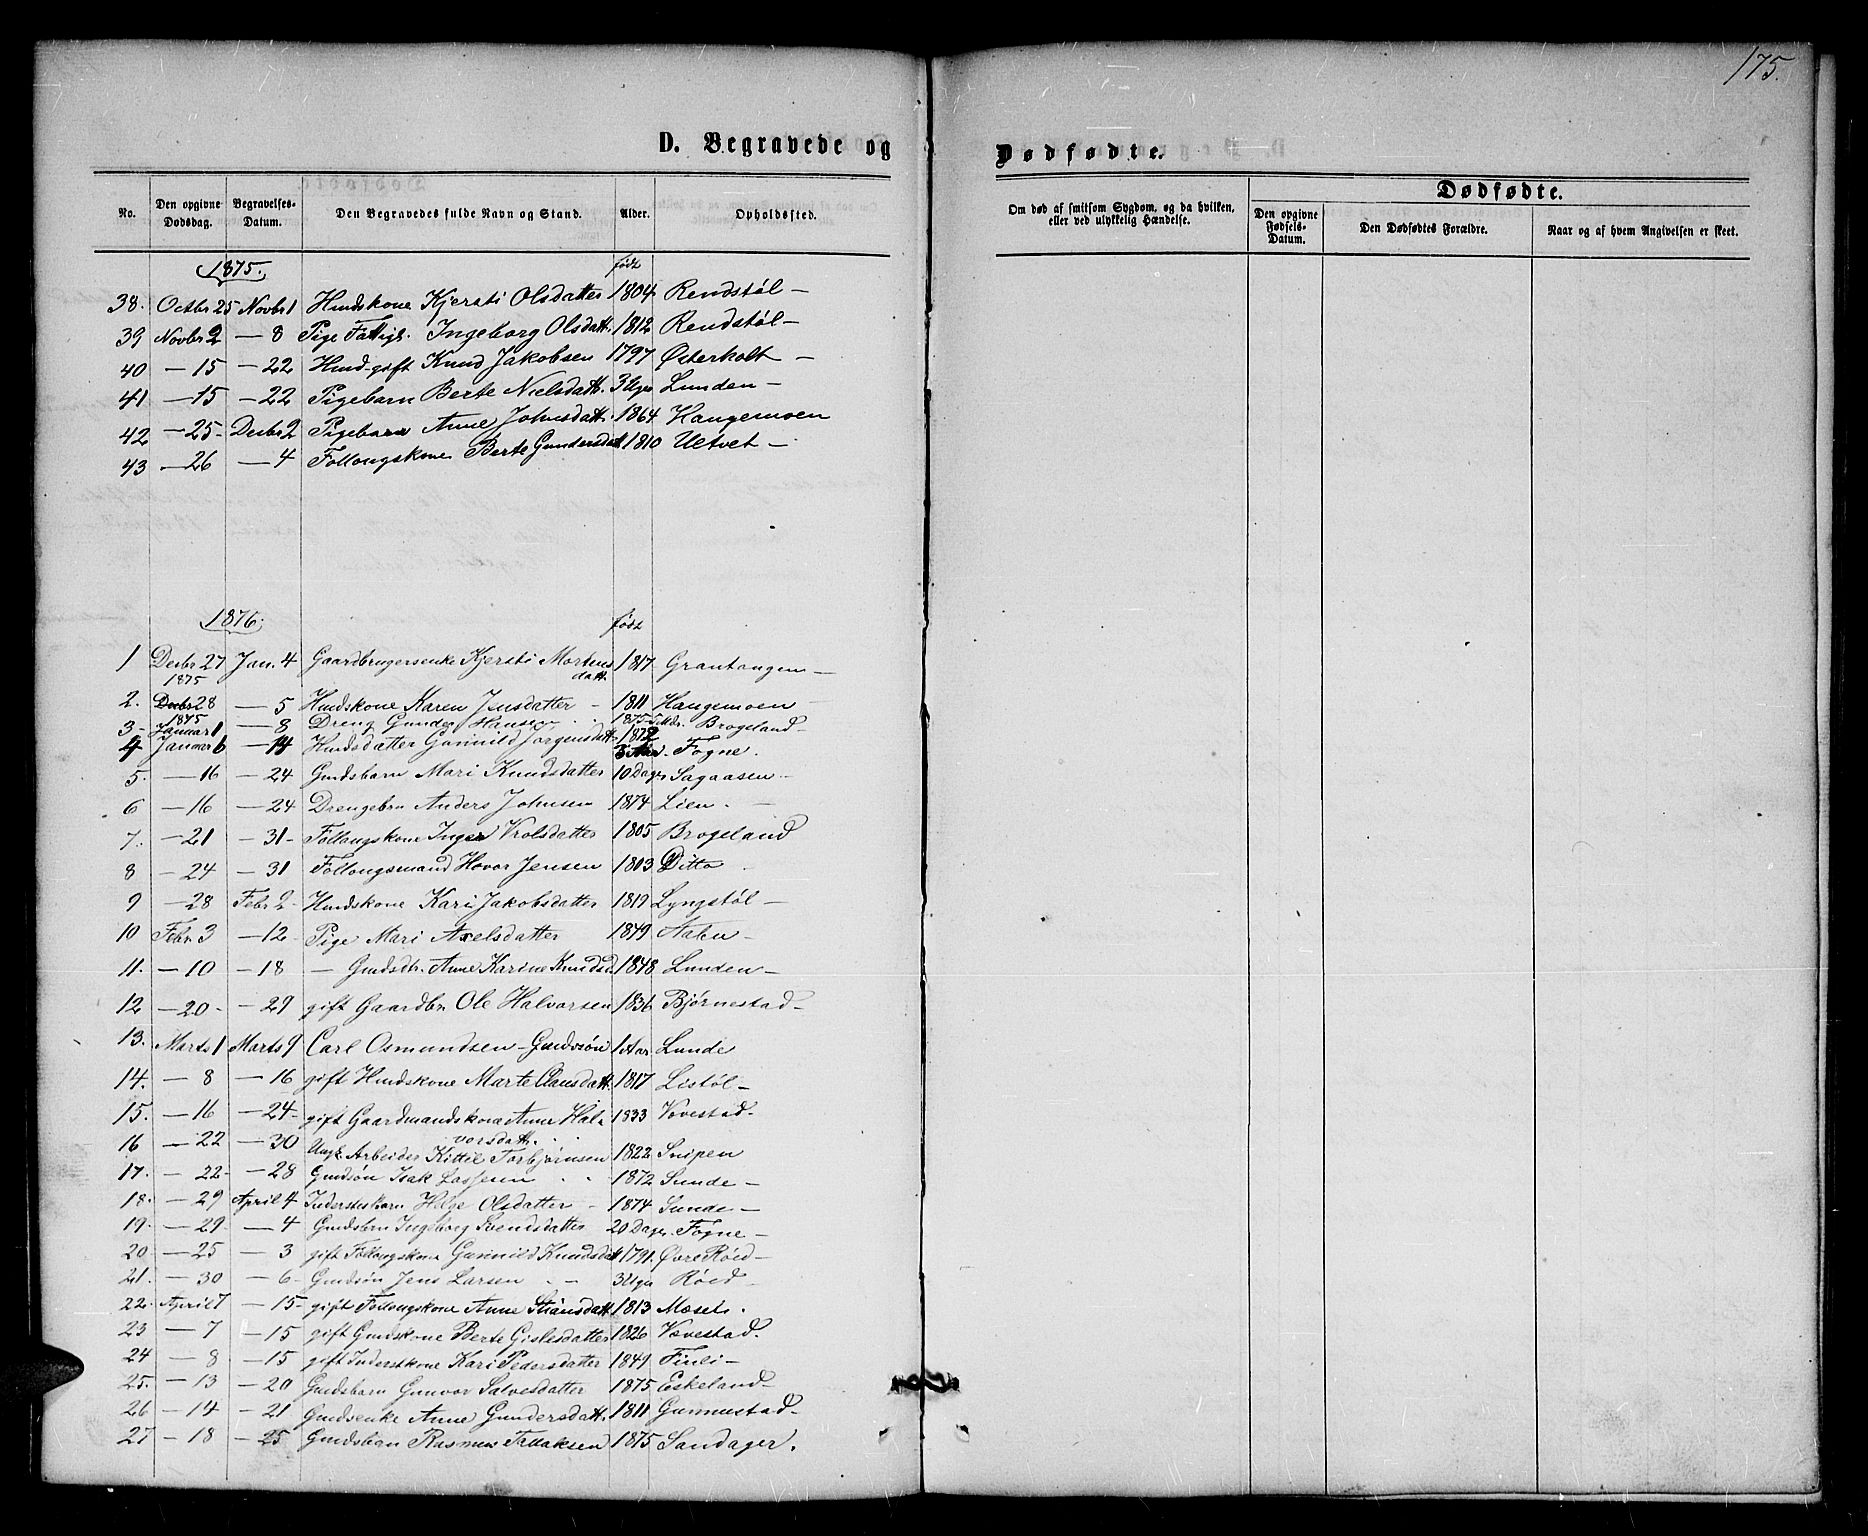 175.
D. Begravede og
Dødfødte.
No.
Den opgivne Dødsdag.
Begravelses-Datum.
Den Begravedes fulde Navn og Stand.
Alder.
Opholdssted.
Om død af smitsom Sygdom, og da hvilken, eller ved ulykkelig Hændelse.
Dødfødte.
Den opgivne Fødsels-Datum.
Den Dødfødtes Forældre.
Naar og af hvem Angivelsen er skeet.
1875. født
38. Octbr 25 Novbr 1 Huuskone Kjersti Olsdatter 1804 Rendstøl —
39 Novbr 2 — 8 Pige Fattigl. Ingeborg Olsdatt. 1812 Rendstøl —
40 — 15 — 22 Husd. gift Knud Jakobsen 1797 Østerholt —
41 — 15 — 22 Pigebarn Berte Nielsdatt. 3 Uger Lunden —
42 — 25 - Decbr 2 Pigebarn Anne Johnsdatt. 1864 Haugemoen
43 — 26 — 4 Føllougskone Berte Gundersdatt 1810 Ulltvet —
1876. født
1 Decbr 27 Jan. 4 Gaardbrugerenke Kjersti Mortens 1817 Grantangen —
1875 datt.
2. Decbr 28 — 5 Huuskone Karen Jensdatter - 1811 Haugemoen —
1875
3 - Januar 1 — 8 Dreng Gunder Hansen 1875 - 5 Mdr. Brogeland —
4 Januar 6 — 14 Husdsdatter Gunnild Jørgensdatt. 1872 Fogne.
5. — 16 — 24 Gmdsbarn Mari Knudsdatter 10 Dager Sagaasen —
6 — 16 — 24 Drengebrn Anders Johnsen 1874 Lien. —
7. — 21 — 31 - Føllougskone Inger Vrolsdatter 1805 Brogeland
8 — 24 — 31 Føllougsmand Hovor Jensen 1803 Ditto
9 — 28 Febr 2 - Huuskone Kari Jakobsdatter 1819 Lyngstøl —
10 Febr 3 — 12 - Pige Mari Axelsdatter 1849 Aaben —
11. — 10 — 18 — Gmdsdtr. Anne Karine Knudsd. 1848 Lunden —
12 — 20 - — 29 gift Gaardbr Ole Halvorsen 1836 Bjørnestad —
13. Marts 1 Marts 9 Carl Osmundsen - Gmdssøn 1 Aar Lunde
14. — 8 — 16 gift Huuskone Marte Clausdatt. 1817 Listøl —
15. — 16 — 24 - gift Gaardmandskone Anne Hal- 1833 Vovestad -
vorsdatt.
16 — 22 — 30 Ungk. Arbeider Kittil Torbjørnsen 1822 Snipen
17. — 22 - — 28 Gmdsøn Isak Lassesen 1872 Sunde —
18. — 29 April 4 Inderstesbarn Helge Olsdatter - 1874 Sunde —
19. — 29. — 4 Gmdsbrn Ingeborg Svendsdatter 20 Dager Fogne —
20 — 25 — 3 gift Føllougskone Gunnild Knudsdatt 1791. Øvre Røed —
21. — 30 — 6 - Gmdsøn Jens Larsen 3 Uger Røed —
22. April 7 — 15 - gift Føllougskone Anne Stiansdatt. 1813 Moset.
23 — 7 — 15 gift Gmdskone Berte Gislesdatter 1826 Vovestad.
24 — 8 — 15 gift Inderstkone Kari Pedersdatter 1849 Finli —
25. — 13 — 20 Gmdsbarn Gunvor Salvesdatter 1875 Eskeland —
26 — 14 — 21 Gmdsenke Anne Gundersdatt. 1811 Gunnestad —
27 — 18 — 25 Gmdsbarn Rasmus Tellaksen 1875 Sandager.